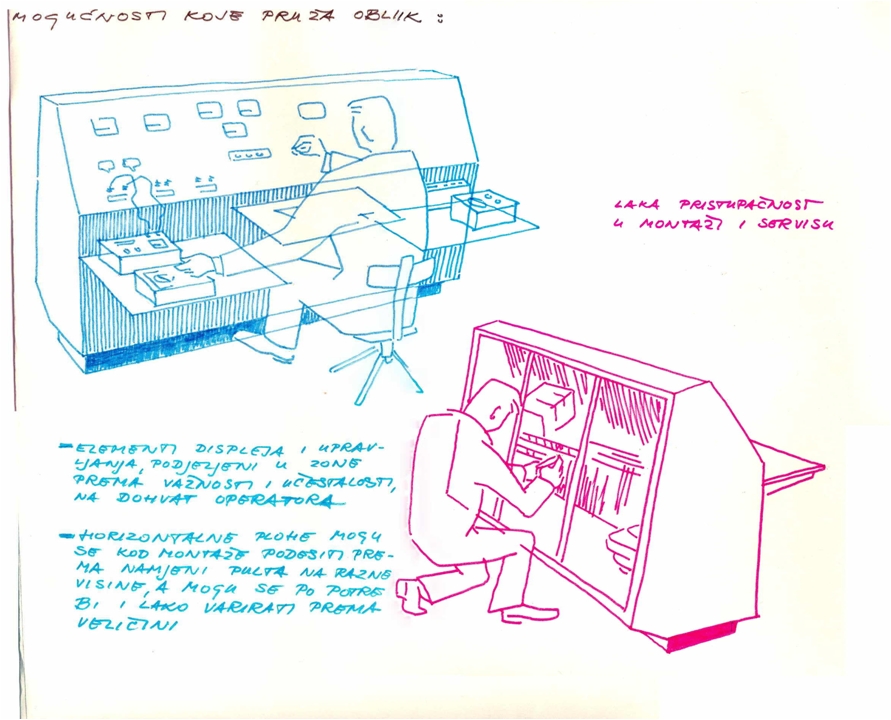 MOGUĆNOSTI KOJE PRUŽA OBLIIK :
LAKA PRISTUPAČNOST
U MONTAŽI I SERVISU
– ELEMENTI DISPLEJA I UPRAV-
LJANJA, PODJELJENI U ZONE
PREMA VAŽNOSTI I UČESTALOSTI,
NA DOHVAT OPERATORA
– HORIZONTALNE PLOHE MOGU
SE KOD MONTAŽE PODESITI PRE-
MA NAMJENI PULTA NA RAZNE
VISINE, A MOGU SE PO POTRE
BI I LAKO VARIRATI PREMA
VELIČINI